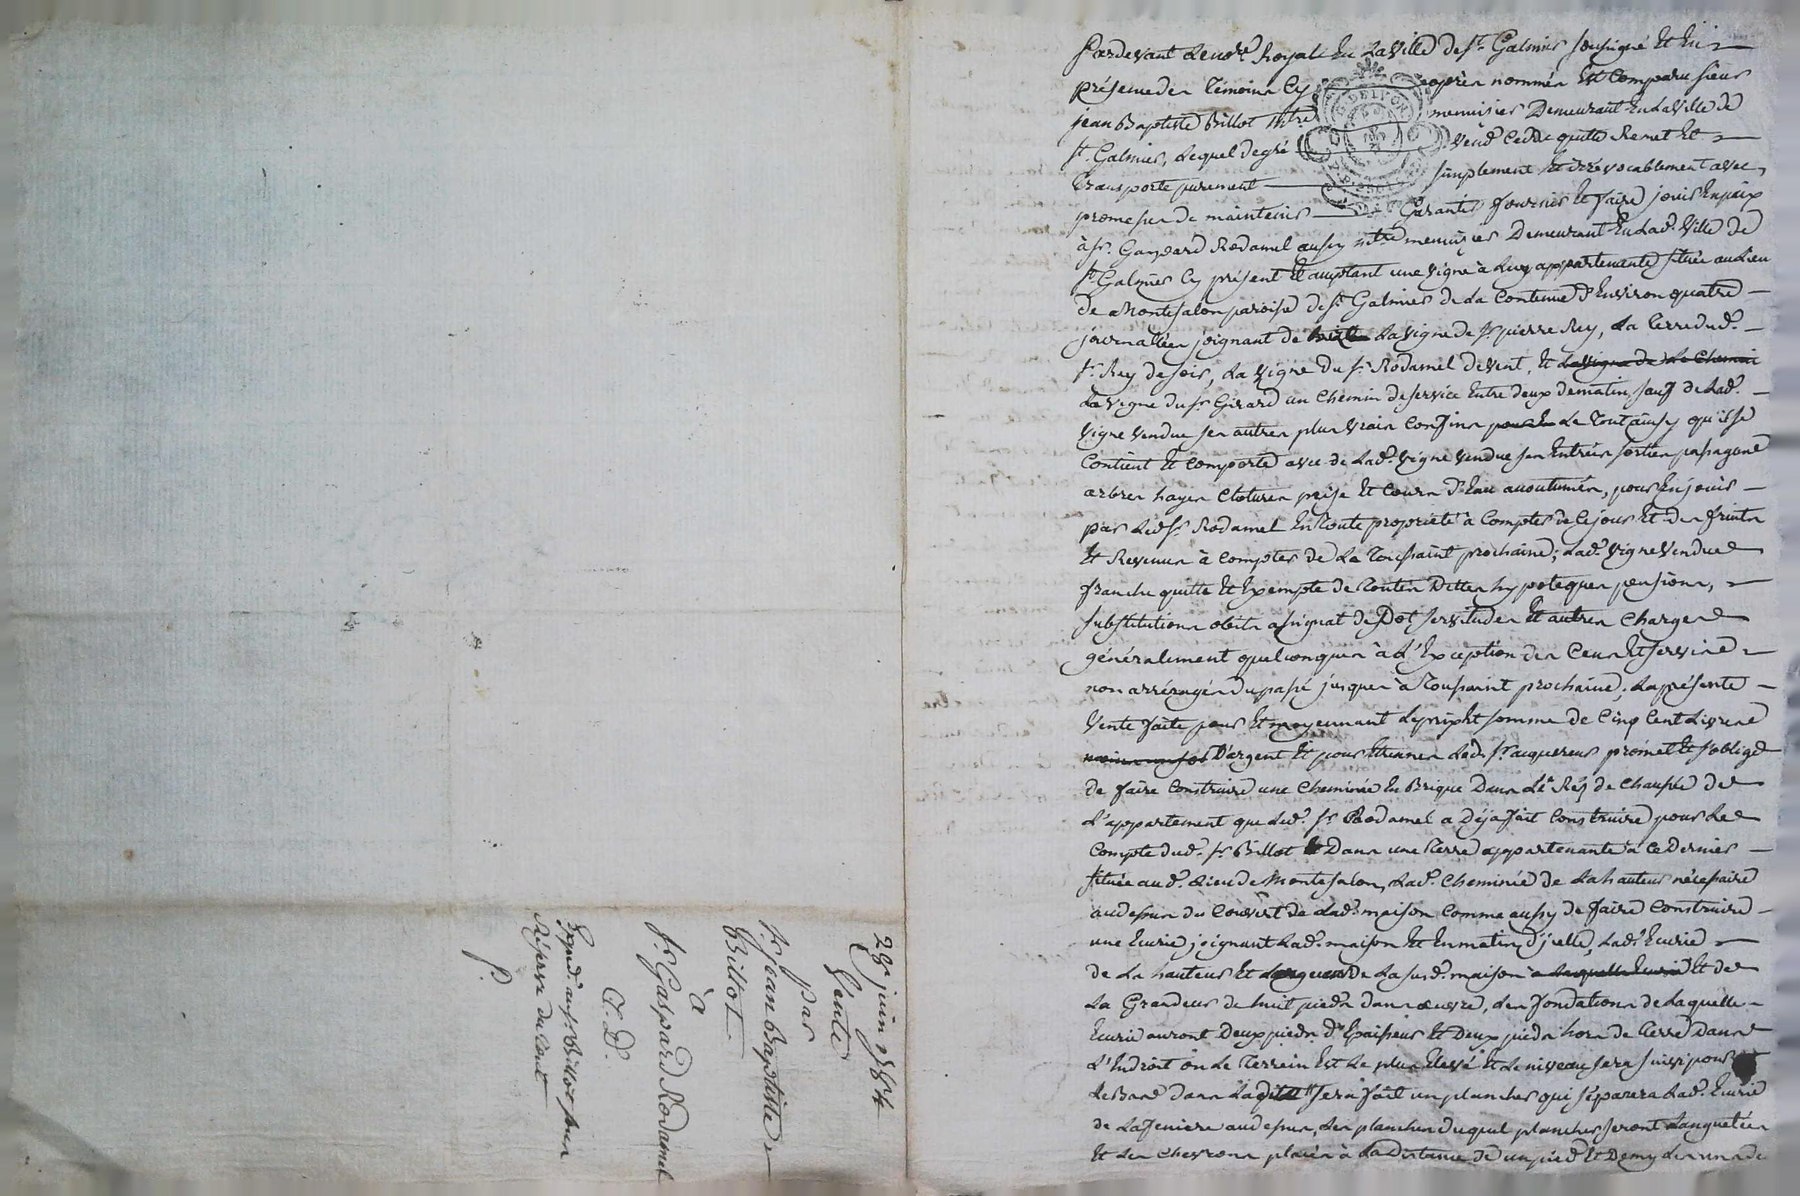 28e juin 1784
Vente
par
sr. jean Baptiste
Billot
à
sr. Gaspard Rodamel
C. D.
Expédié aud. sr. Billot sans
Réserve du Cont.
P.
Pardevant Le notre. Royal En La Ville de St. Galmier soussigné Et En
présence des Témoins Cy après nommés Est Comparu sieur
jean Baptiste Billot Mtre menuisier Demeurant En La Ville de
St. Galmier, Lequel de gré Vend Cede quitte Remet Et
Transporte purement simplement Et irrévocablement avec
promesse de maintenir Garantir fournir Et faire jouir En paix
à sr. Gaspard Rodamel aussy mtre menuisier Demeurant En Lad. Ville de
St. Galmier Cy présent Et acceptant une Vigne à Luy appartenante située au Lieu
de Montesalon paroisse de St. Galmier de La Contenue d'Environ quatre
journallées joignant de La Vigne de sr. pierre Rey, La Terre dud.
sr. Rey de soir, La Vigne du sr. Rodamel de Vent, Et La Vigne de Le Chemin
La Vigne du sr. Girard un Chemin de service Entre deux de matin, sauf de Lad.
Vigne Vendue ses autres plus Vrais Confins Le Tout ainsy qu'il se
Contient Et Comporte avec de Lad. Vigne Vendue ses Entrées sorties passages
arbres hayes Clotures prise Et Cours d'Eau accoutumés, pour En jouir
par Led. sr. Rodamel En Toute propriété à Compter de Ce jour Et des fruits
Et Revenus à Compter de La Toussaint prochaine; Lad. Vigne Vendue
franche quitte Et Exempte de Toutes Dettes hypoteques pensions,
substitutions obits assignat de Dot servitudes Et autres Charges
généralement quelconques à L'Exception des Cens Et servis
non arréragés du passé jusques à Toussaint prochaine. La présente
Vente faite pour Et moyennant Le prix Et somme de Cinq Cent Livres
D'argent Et pour Etrennes Led. sr. acquereur promet Et s'oblige
de faire Construire une Cheminée En Brique Dans Le Rés de Chaussée de
L'appartement que Led. sr. Rodamel a Déja fait Construire pour Le
Compte dud. sr. Billot Dans une Terre appartenante à Ce Dernier
située aud. Lieu de Montesalon, Lad. Cheminée de La hauteur nécessaire
au dessus du Couvert de Lad. maison Comme aussy de faire Construire
une Ecurie joignant Lad. maison Et En matin d'jcelle, Lad. Ecurie
de La hauteur Et Longueur de La susd. maison Et de
La Grandeur de huit pieds dans œuvre, Les fondations de Laquelle
Ecurie auront Deux pieds d'Epaisseur Et Deux pieds hors de Terre Dans
L'Endroit où Le Terrein Est Le plus Elevé Et Le niveau sera suivi pour
Le dans Ladite sera fait un plancher qui séparera Lad. Ecurie
de La feniere au dessus, Les planches duquel plancher seront Languetées
Et Les Chevrons placés à La Distance de un pied Et Demy Les uns de